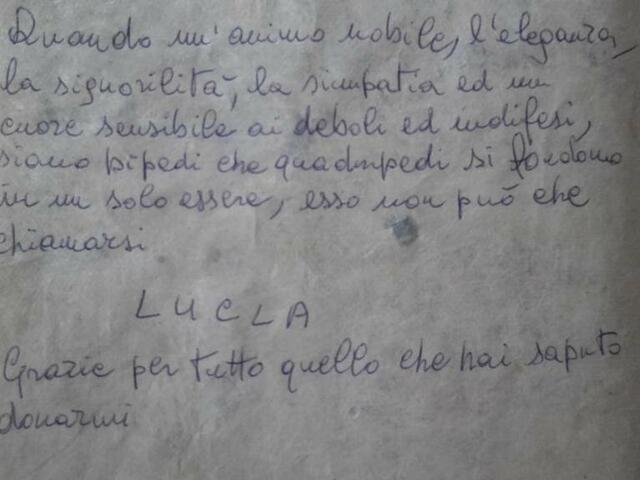 Quando un'animo nobile, l'eleganza,
la signorilità, la simpatia ed un
cuore sensibile ai deboli ed indifesi,
siano bipedi che quadrupedi si fondono
in un solo essere, esso non può che
chiamarsi
LUCIA
Grazie per tutto quello che hai saputo
donarmi